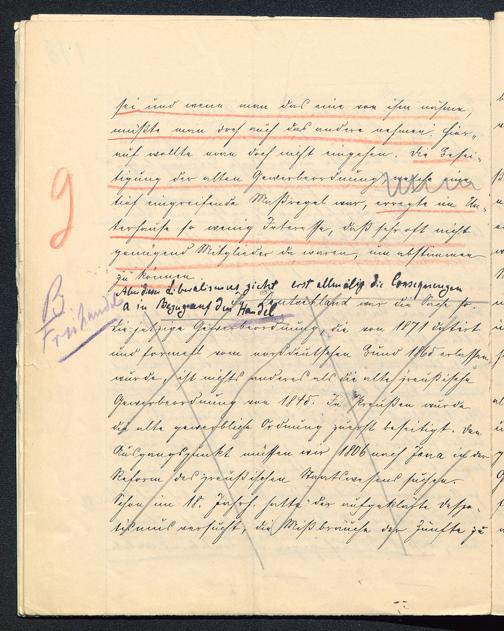 sei und wenn man das eine von ihm nähme,
müßte man doch auch das andere nehmen. Hier-
auf wollte man doch nicht eingehen. Die Besei-
tigung der alten Gewerbeordnung, welche eine
tief eingreifende Maßregel war, erregte im Un-
terhause so wenig Interesse, daß sehr oft nicht
genügend Mitglieder da waren, um abstimmen
zu können.
9
B
Freihandel
Aber der Liberalismus zieht erst allmälig die Consequenzen
a in Bezug auf den Handel
In Deutschland war die Sache so.
Die jetzige Gewerbeordnung, die von 1871 datirt
und formell vom norddeutschen Bund erlassen
wurde, ist nichts anderes als die alte preußische
Gewerbeordnung von 1845. In Preußen wurde
die alte gewerbliche Ordnung zuerst beseitigt. Den
Ausgangspunkt müssen wir 1806 nach Jena in der
Reform des preußischen Staatswesens suchen.
Schon im 18. Jahrh. hatte der aufgeklärte Despo-
tismus versucht, die Mißbräuche der Zünfte zu